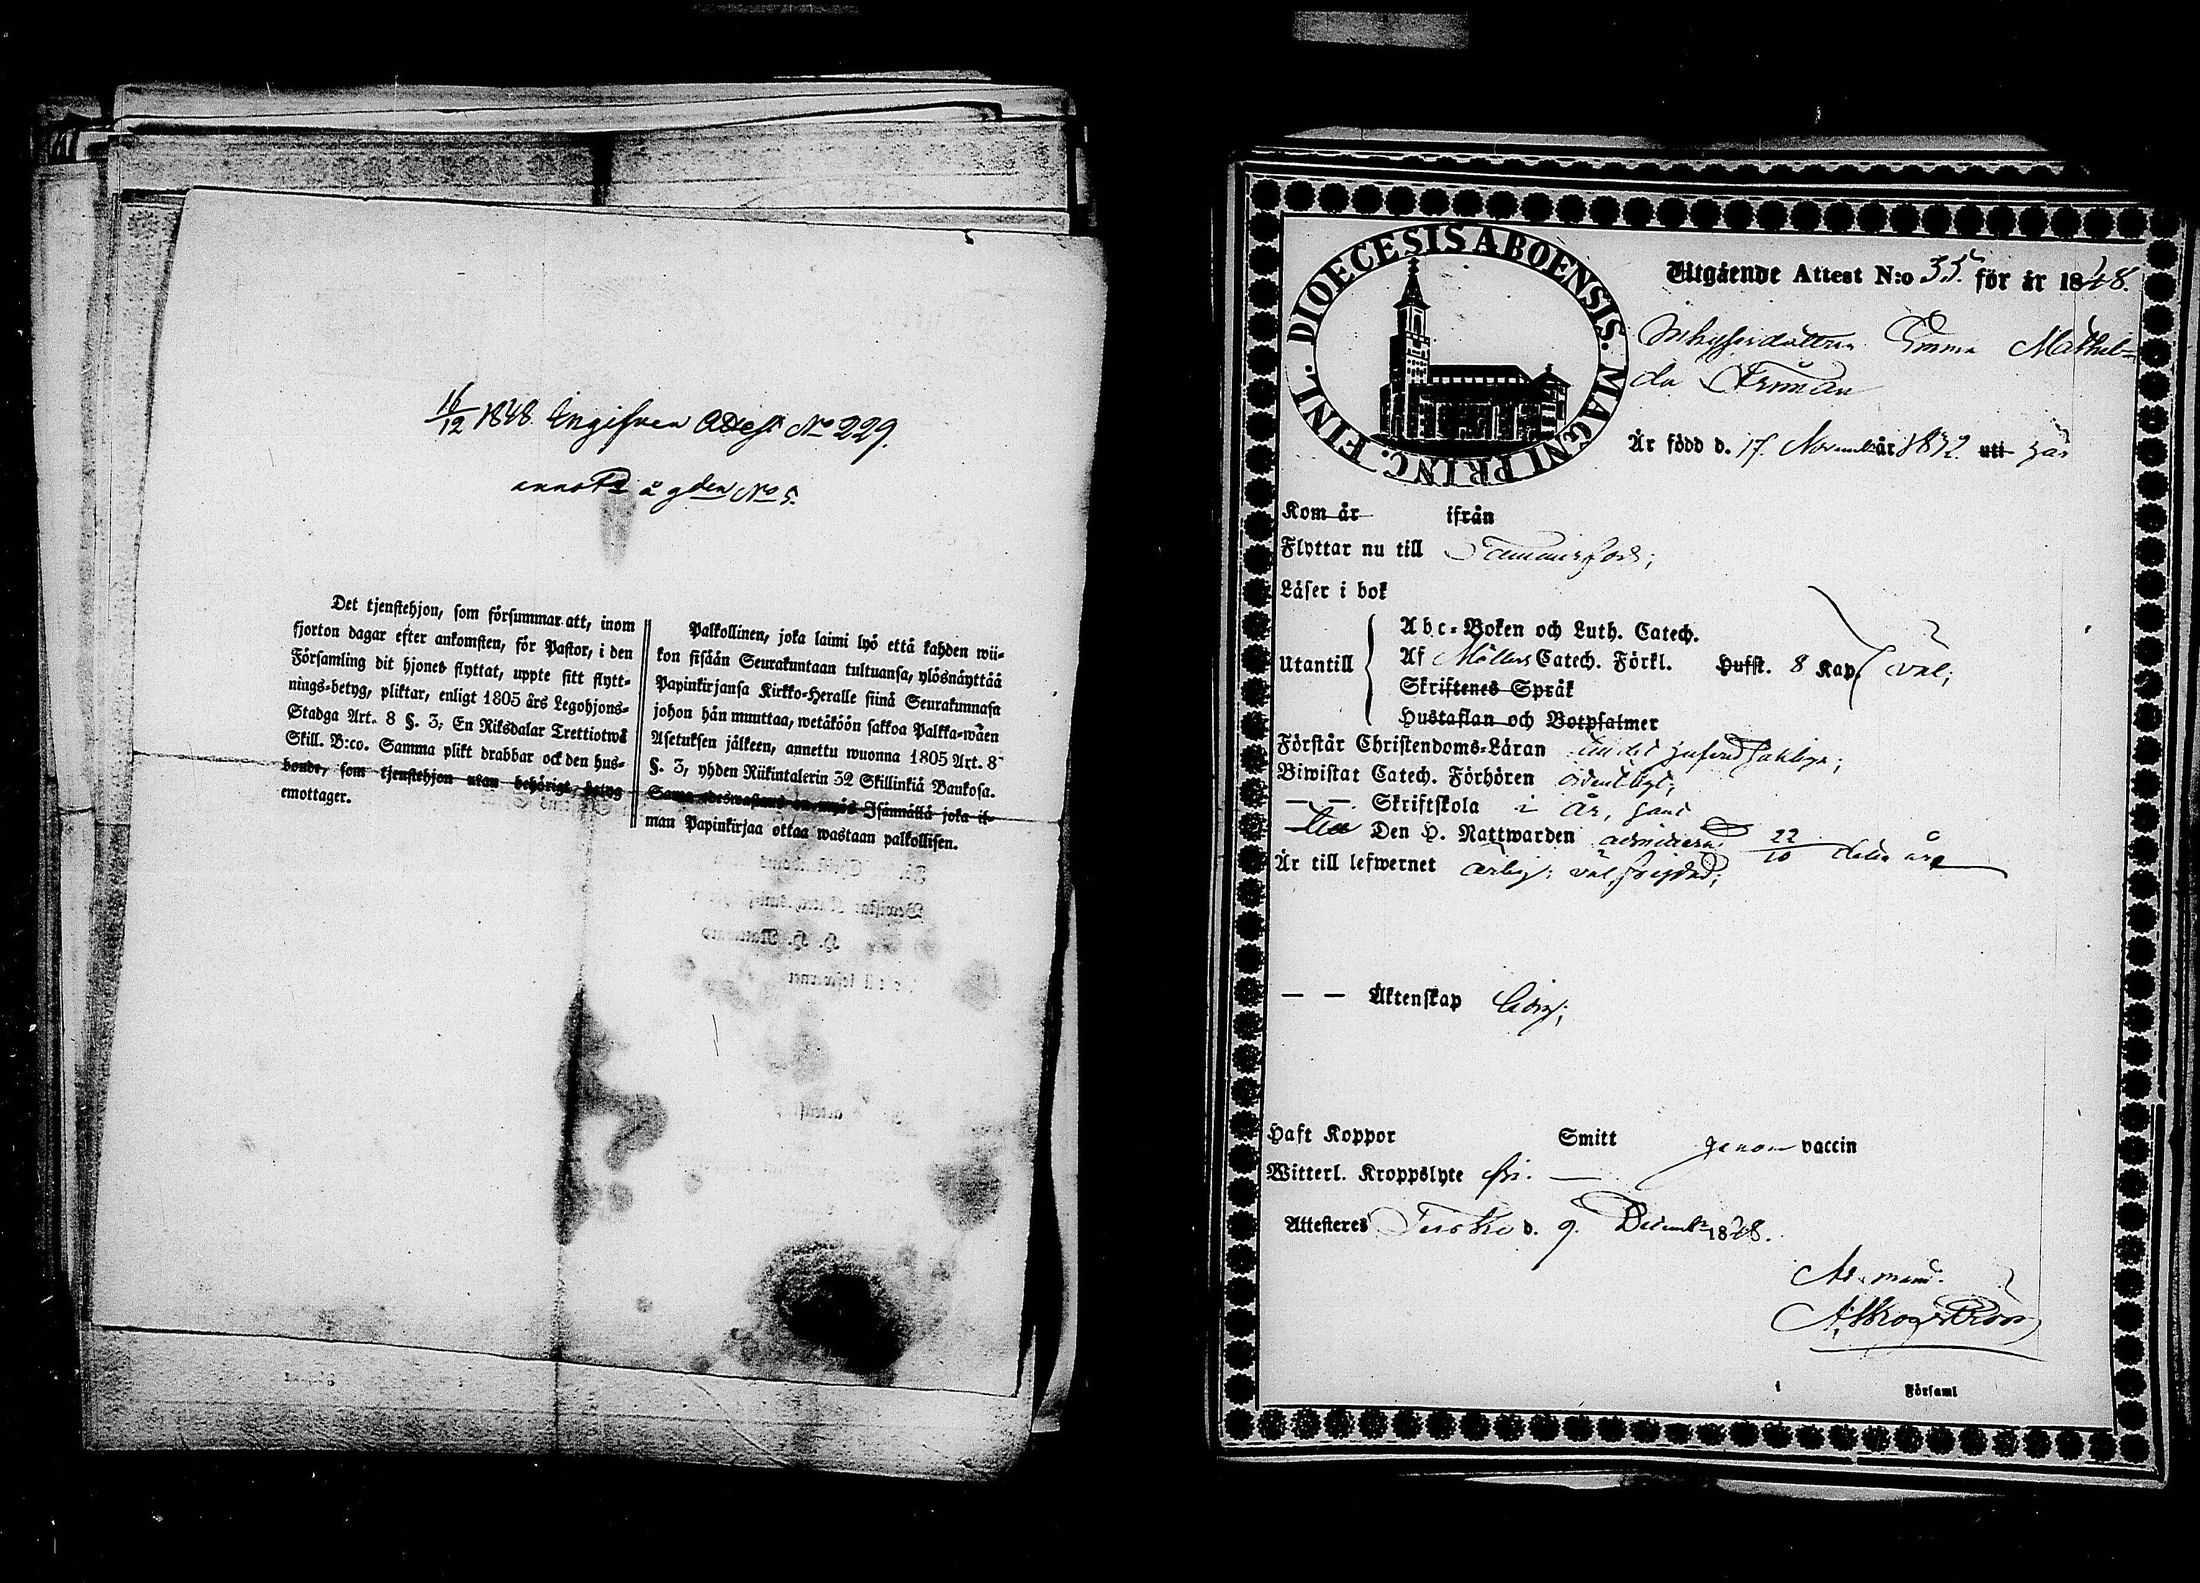 16/12 1848. Ingifven Attest No 229.
annot. å gden No 5.
Det tjenstehjon, som försummar att, inom
fjorton dagar efter ankomsten, för Pastor, i den
Församling dit hjonet flyttat, uppte sitt flytt-
nings-betyg, pliktar, enligt 1805 års Legohjons-
Stadga Art. 8 §. 3, En Riksdalar Trettiotwå
Skill. B:co. Samma plikt drabbar ock den hus-
bonde, som tjenstehjon utan behörigt betyg
emottager.
Palkollinen, joka laimi lyö että kahden wii-
kon sisään Seurakuntaan tultuansa, ylösnäyttää
Papinkirjansa Kirkko-Heralle siinä Seurakunnasa
johon hän muuttaa, wetäköön sakkoa Palkka-wäen
Asetuksen jälkeen, annettu wuonna 1805 Art. 8
§. 3, yhden Riikintalerin 32 Skillinkiä Bankosa.
Sama edeswastaus on myös Isännällä joka il-
man Papinkirjaa ottaa wastaan palkollisen.
DIOECESIS ABOENSIS. MAGNI PRINC. FINL.
Utgående Attest N:o 35 för år 1848.
Inhysesdottren Emma Mathil-
da Froman
Är född d. 17 Novemb. år 1832 uti här
Kom år ifrån
Flyttar nu till Tammerfors;
Läser i bok
Abc-Boken och Luth. Catech.
Utantill Af Möllers Catech. Förkl. Hufst. 8 Kap. väl;
Skriftenes Språk
Hustaflan och Botpsalmer
Förstår Christendoms-Läran
Biwistat Catech. Förhören ordentligt;
— — Skriftskola i år, samt
till Den H. Nattwarden admitterad 22/10 detta år
Är till lefwernet ärlig; väl frejdad;
— — Äktenskap ledig;
Haft Koppor Smitt genom vaccin
Witterl. Kroppslyte fri. —
Attesteres d. 9 Decemb. 1848.
Ad. mand.
Församl